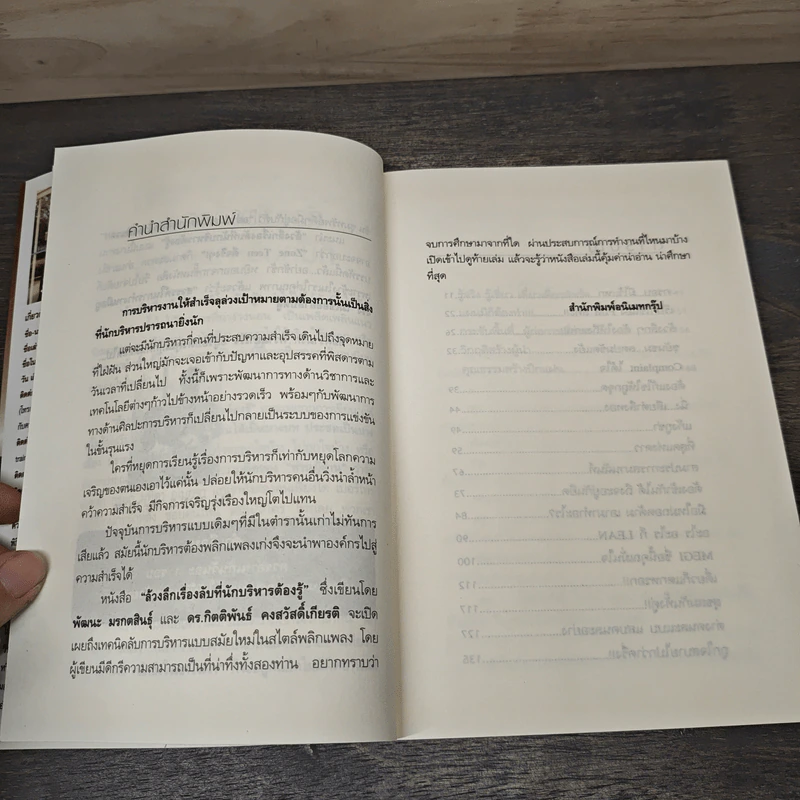 คำนำสำนักพิมพ์
การบริหารงานให้สำเร็จลุล่วงเป้าหมายตามต้องการนั้นเป็นสิ่ง
ที่นักบริหารปรารถนายิ่งนัก
แต่จะมีนักบริหารกี่คนที่ประสบความสำเร็จ เดินไปถึงจุดหมาย
ที่ใฝ่ฝัน ส่วนใหญ่มักจะเจอเข้ากับปัญหาและอุปสรรคที่พิสดารตาม
วันเวลาที่เปลี่ยนไป ทั้งนี้ก็เพราะพัฒนาการทางด้านวิชาการและ
เทคโนโลยีต่างๆก้าวไปข้างหน้าอย่างรวดเร็ว พร้อมๆกับพัฒนาการ
ทางด้านศิลปะการบริหารก็เปลี่ยนไปกลายเป็นระบบของการแข่งขัน
ในขั้นรุนแรง
ใครที่หยุดการเรียนรู้เรื่องการบริหารก็เท่ากับหยุดโลกความ
เจริญของตนเองเอาไว้แค่นั้น ปล่อยให้นักบริหารคนอื่นวิ่งนำล้ำหน้า
คว้าความสำเร็จ มีกิจการเจริญรุ่งเรืองใหญ่โตไปแทน
ปัจจุบันการบริหารแบบเดิมๆที่มีในตำรานั้นเก่าไม่ทันการ
เสียแล้ว สมัยนี้นักบริหารต้องพลิกแพลงเก่งจึงจะนำพาองค์กรไปสู่
ความสำเร็จได้
หนังสือ "ล้วงลึกเรื่องลับที่นักบริหารต้องรู้" ซึ่งเขียนโดย
พัฒนะ มรกตสินธุ์ และ ดร.กิตติพันธ์ คงสวัสดิ์เกียรติ จะเปิด
เผยถึงเทคนิคลับการบริหารแบบสมัยใหม่ในสไตล์พลิกแพลง โดย
ผู้เขียนมีดีกรีความสามารถเป็นที่น่าทึ่งทั้งสองท่าน อยากทราบว่า
จบการศึกษามาจากที่ใด ผ่านประสบการณ์การทำงานที่ไหนมาบ้าง
เปิดเข้าไปดูท้ายเล่ม แล้วจะรู้ว่าหนังสือเล่มนี้คุ้มค่าน่าอ่าน น่าศึกษา
ที่สุด
สำนักพิมพ์อนิเมทกรุ๊ป